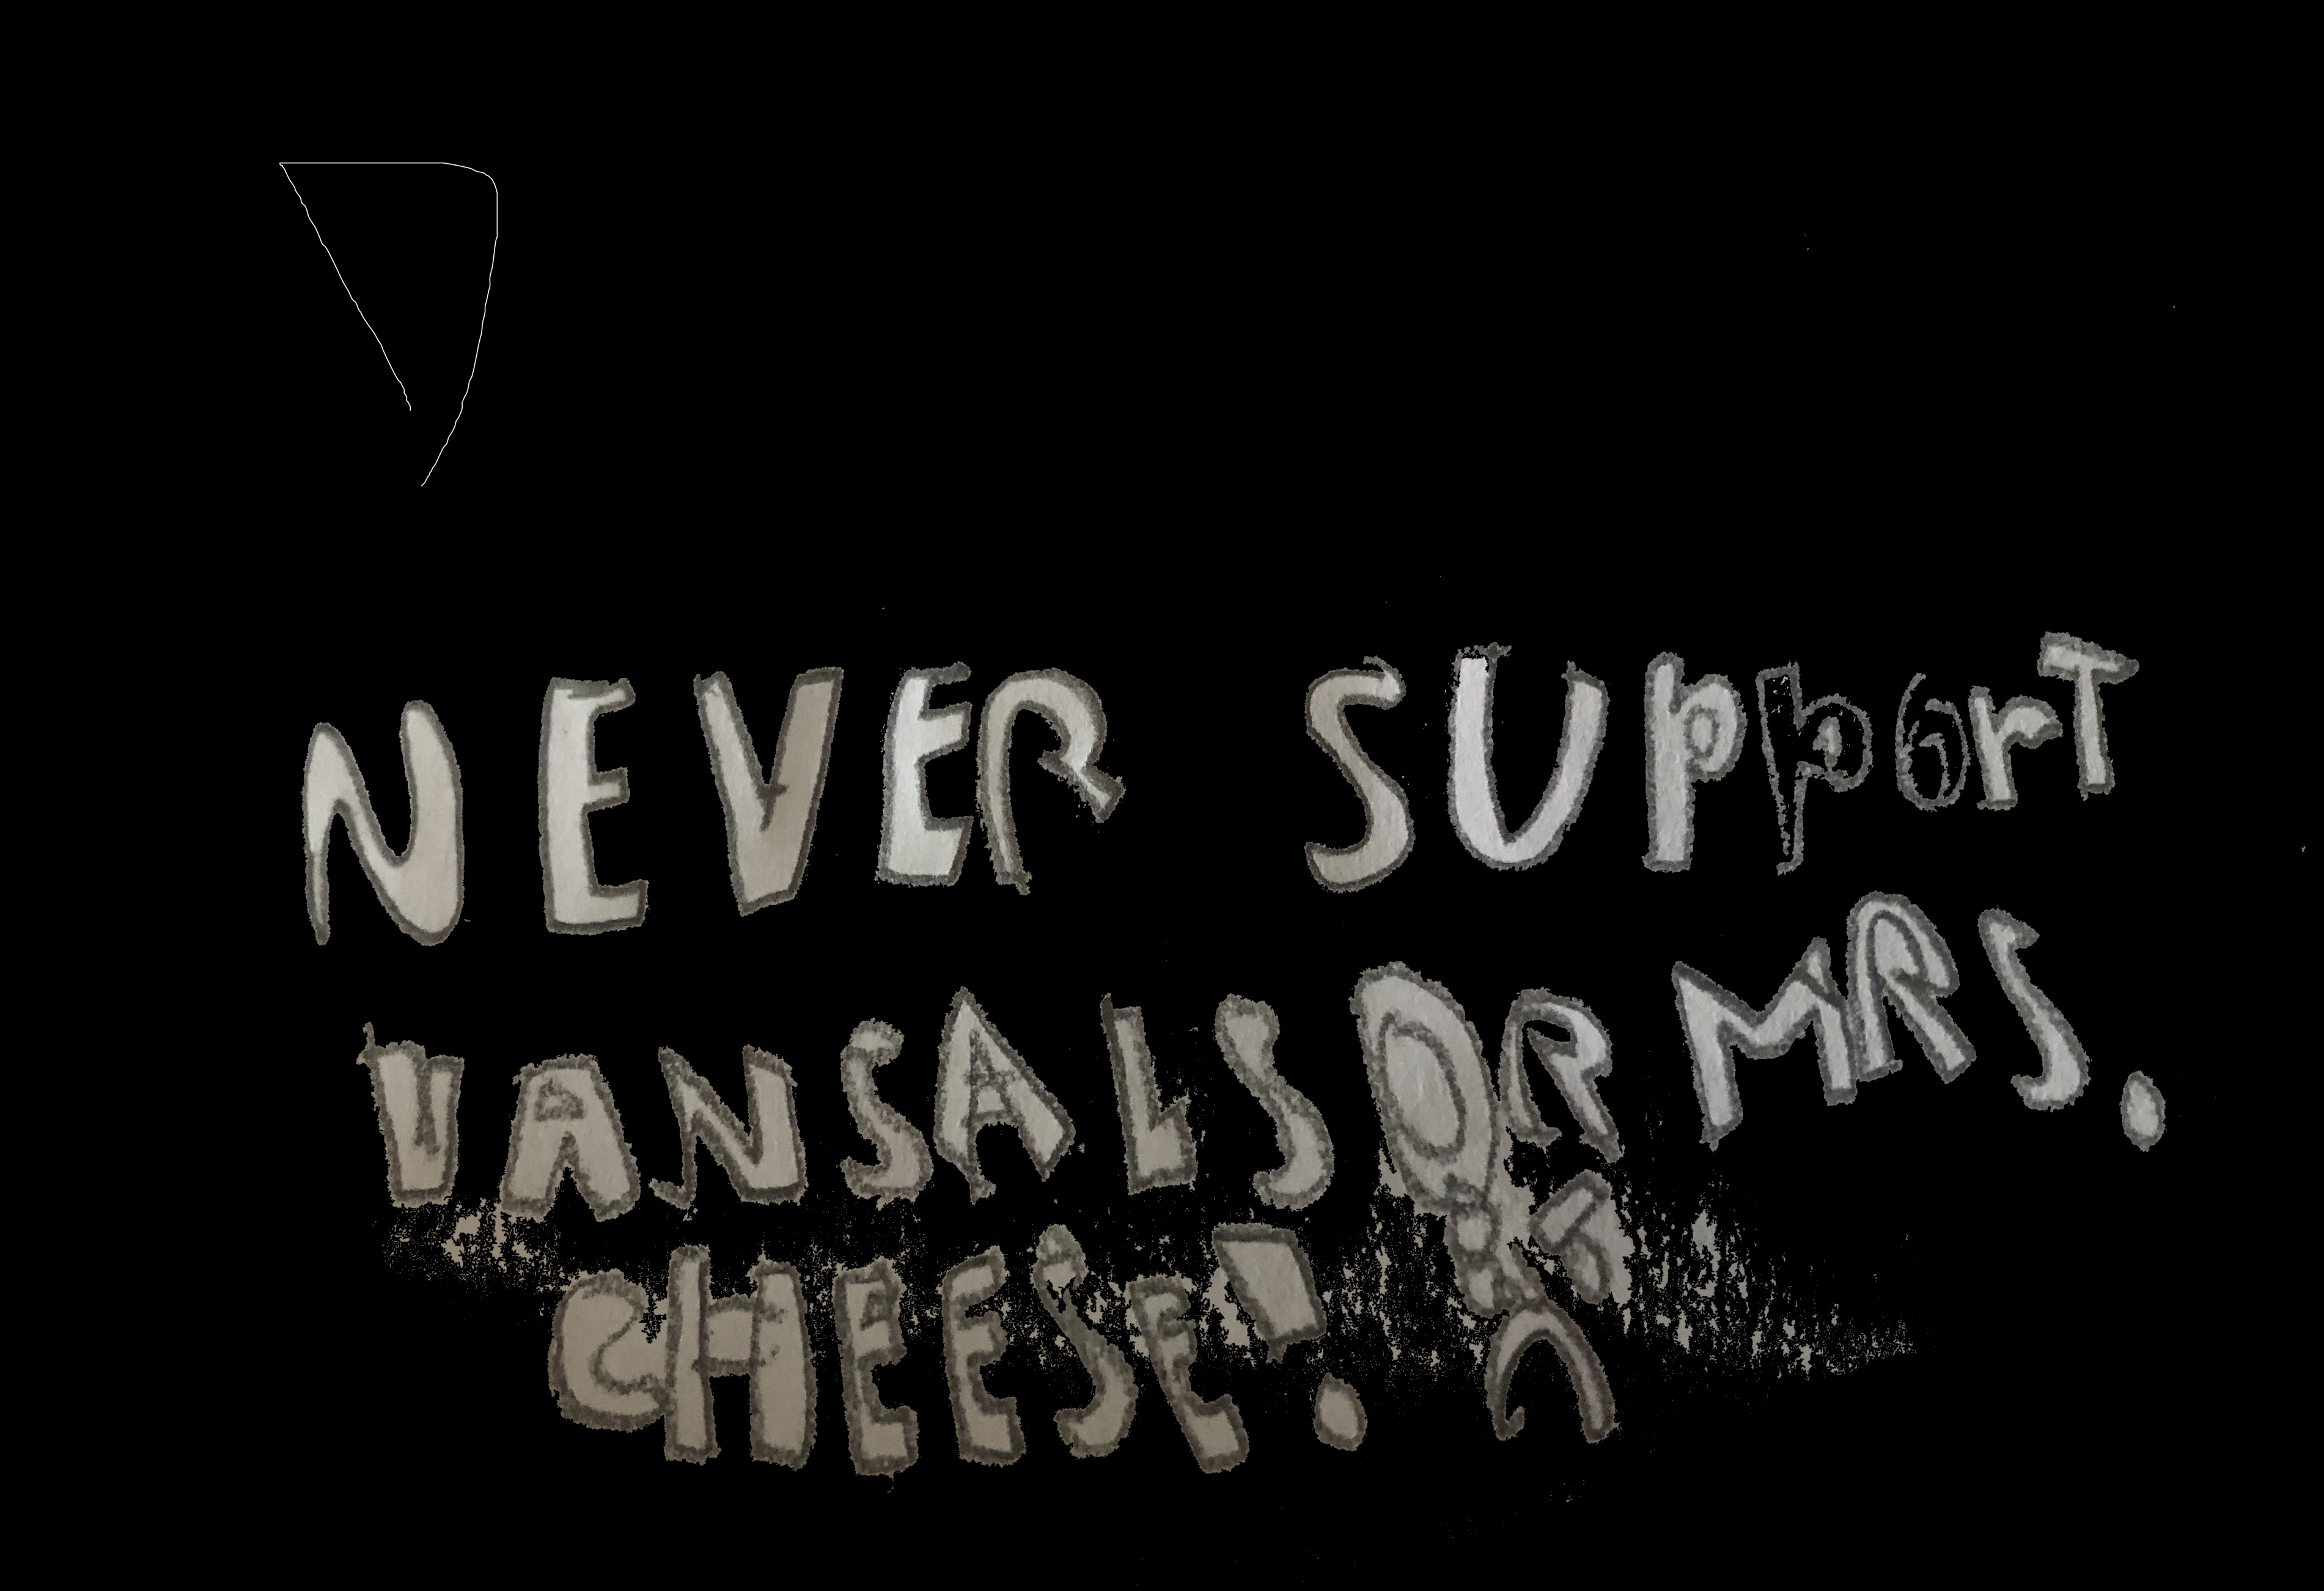 NEVER SUPPorT
VANSALS OR MRS.
CHEESE!